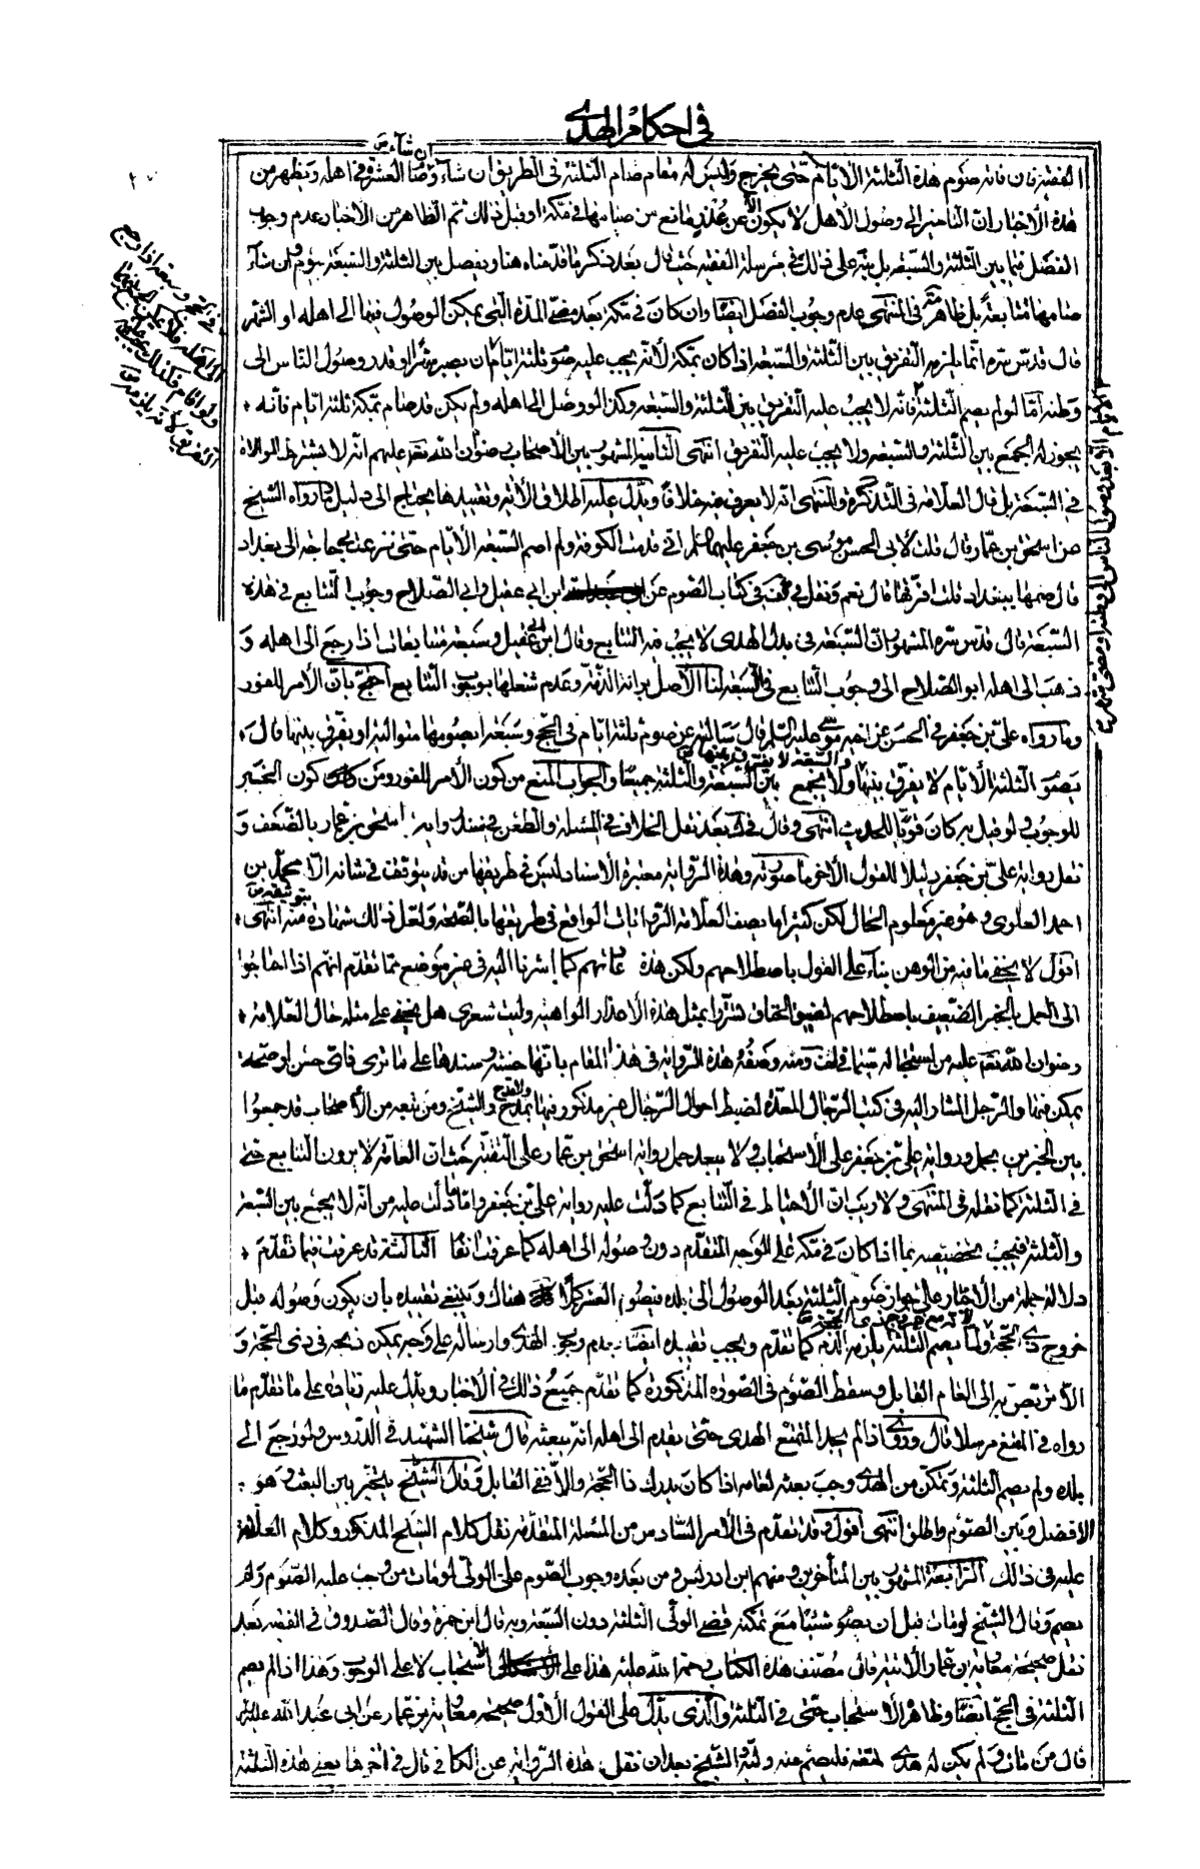 في احكام الهدي
ان شاء
الفقيه فان فاته صوم هذه الثلثة الايام حتى يخرج وليس له مقام صام الثلثة في الطريق ان شاء وصام العشرة في اهله ويظهر من
هذه الاخبار ان التاخير الى وصول الاهل لا يكون الا عن عذر مانع من صيامها في مكة او قبل ذلك ثم الظاهر من الاخبار عدم وجوب
الفصل فيما بين الثلثة والسبعة بل نبه على ذلك في مرسلة الفقيه حيث قال بعد ذكر ما قدمناه هنا ويفصل بين الثلثة والسبعة بيوم وان شاء
صامها متتابعة بل ظاهره في المنتهى عدم وجوب الفصل ايضا وان كان في مكة بعد مضي المدة التي يمكن الوصول فيها الى اهله او الشهر
قال قدس سره انما يلزمه التفريق بين الثلثة والسبعة اذا كان بمكة لانه يجب عليه صوم ثلثة ايام ان يصبر شهرا او قدر وصول الناس الى
وطنه اما لو لم يصم الثلثة فانه لا يجب عليه التفريق بين الثلثة والسبعة وكذا لو وصل الى اهله ولم يكن قد صام بمكة ثلثة ايام فانه
يجوز له الجمع بين الثلثة والسبعة ولا يجب عليه التفريق انتهى الثامنة المشهور بين الاصحاب رضوان الله عليهم انه لا يشترط الموالاة
في السبعة بل قال العلامة في التذكرة والمنتهى انه لا يعرف فيه خلافا ويدل عليه اطلاق الآية وتقييدها يحتاج الى دليل وما رواه الشيخ
عن اسحق بن عمار قال قلت لابي الحسن موسى بن جعفر عليهما السلام اني قدمت الكوفة ولم اصم السبعة الايام حتى نزعت في حاجة الى بغداد
قال صمها ببغداد قلت افرقها قال نعم ونقل في لف في كتاب الصوم عن ابن ابي عقيل وابي الصلاح وجوب التتابع في هذه
السبعة قال قدس سره المشهور ان السبعة في بدل الهدى لا يجب فيه التتابع وقال ابن ابي عقيل وسبعة متتابعات اذا رجع الى اهله و
ذهب الى اهله ابو الصلاح الى وجوب التتابع في السبعة لنا الاصل براءة الذمة وعدم شغلها بوجوب التتابع احتج بان الامر للفور
وما رواه علي بن جعفر في الحسن عن اخيه موسى عليه السلم قال سالته عن صوم ثلثة ايام في الحج وسبعة ايصومها متوالية او يفرق بينها قال
يصوم الثلثة الايام لا يفرق بينها والسبعة لا يفرق بينها ولا يجمع بين السبعة والثلثة جميعا والجواب المنع من كون الامر للفور ومن كون الخبر
للوجوب ولو قيل به كان قويا للحديث انتهى وقال في ك بعد نقل الخلاف في المسئلة والطعن في سند رواية اسحق بن عمار بالضعف و
نقل رواية علي بن جعفر دليلا للقول الاخر ما صورته وهذه الرواية معتبرة الاسناد ليس في طريقها من قد يتوقف في شانه الا محمد بن
احمد العلوي وهو غير معلوم الحال لكن كثيرا ما يصف العلامة الروايات الواقع في طريقها بالصحة ولعل ذلك شهادة منه بتوثيقه انتهى
اقول لا يخفى ما فيه من الوهن بناء على القول باصطلاحهم ولكن هذه عادتهم كما اشرنا اليه في غير موضع مما تقدم انهم اذا احتاجوا
الى العمل بالخبر الضعيف باصطلاحهم لضيق الخناق تستروا بمثل هذه الاعذار الواهية وليت شعري هل يخفى على مثله حال العلامة
رضوان الله عليه من استعجاله سيما في لف ومنه وصفه هذه الرواية في هذا المقام بانها حسنة وسندها على ما ترى فاي حسن او صحة
يمكن فيها والرجل المشار اليه في كتب الرجال المعدة لضبط احوال الرجال غير مذكور فيها بمدح ولا قدح والشيخ ومن تبعه من الاصحاب قد جمعوا
بين الخبرين بحمل رواية علي بن جعفر على الاستحباب ولا يبعد حمل رواية اسحق بن عمار على التقية حيث ان العامة لا يرون التتابع حتى
في الثلثة كما نقله في المنتهى ولا ريب ان الاحتياط في التتابع كما دلت عليه رواية علي بن جعفر واما ما دلت عليه من انه لا يجمع بين السبعة
والثلثة فيجب تخصيصه بما اذا كان في مكة على الوجه المتقدم دون وصوله الى اهله كما عرفت آنفا الثالثة قد عرفت فيما تقدم
دلالة جملة من الاخبار على جواز صوم الثلثة بعد الوصول الى بلده فيصوم العشر كملا هناك وينبغي تقييده بان يكون وصوله قبل
خروج ذي الحجة لانه مع خروج ذي الحجة ولما يصم الثلثة يلزمه الدم كما تقدم ويجب تقييده ايضا بعدم وجود الهدي وارساله على وجه يمكن ذبحه في ذي الحجة و
الا تربص به الى العام القابل وسقط الصوم في الصورة المذكورة كما تقدم جميع ذلك في الاخبار ويدل عليه زيادة على ما تقدم ما
رواه في المقنع مرسلا قال وروي اذا لم يجد المتمتع الهدى حتى يقدم الى اهله انه يبعث به قال شيخنا الشهيد في الدروس ولو رجع الى
بلده ولم يصم الثلثة وتمكن من الهدي وجب بعثه لعامه اذا كان يدرك ذا الحجة والا ففي القابل وقال الشيخ يتخير بين البعث وهو
الافضل وبين الصوم واطلق انتهى اقول وقد تقدم في الامر السادس من المسئلة المتقدمة نقل كلام الشيخ المذكور وكلام العلامة
عليه في ذلك الرابعة المشهور بين المتأخرين ومنهم ابن ادريس ومن بعده وجوب الصوم على الولي لو مات من وجب عليه الصوم ولم
يصم وقال الشيخ لو مات قبل ان يصوم شيئا مع تمكنه قضى الولي الثلثة دون السبعة وبه قال ابن حمزة وقال الصدوق في الفقيه بعد
نقل صحيحة معاوية بن عمار الاتية قال مصنف هذا الكتاب رحمة الله عليه هذا على الاستحباب لا على الوجوب وهذا اذا لم يصم
الثلثة في الحج ايضا وظاهره الاستحباب حتى في الثلثة والذي يدل على القول الاول صحيحة معاوية بن عمار عن ابي عبد الله عليه السلم
قال من مات ولم يكن له هدي لمتعته فليصم عنه وليه والشيخ بعد ان نقل هذه الرواية عن الكافي قال في اخرها يعني هذه الثلثة
في الحج وسبعة اذا رجع
الى اهله